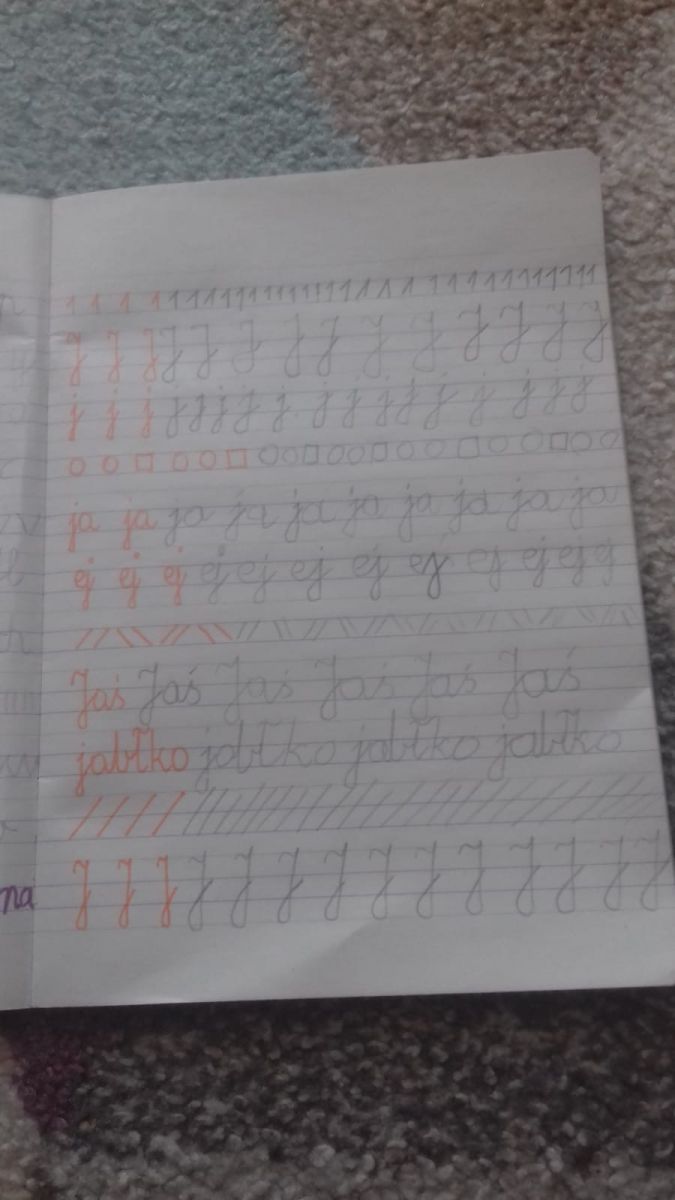 1 1 1 1 1 1 1 1 1 1 1 1 1 1 1 1 1 1 1 1 1 1 1 1 1 1 1 1 1 1 1 1 1 1 1
J J J J J J J J J J J J J J
j j j j j j j j j j j j j j j j j
ja ja ja ja ja ja ja ja ja ja
ej ej ej ej ej ej ej ej ej ej ej ej
Jaś Jaś Jaś Jaś Jaś Jaś
jabłko jabłko jabłko jabłko
J J J J J J J J J J J J J J
na